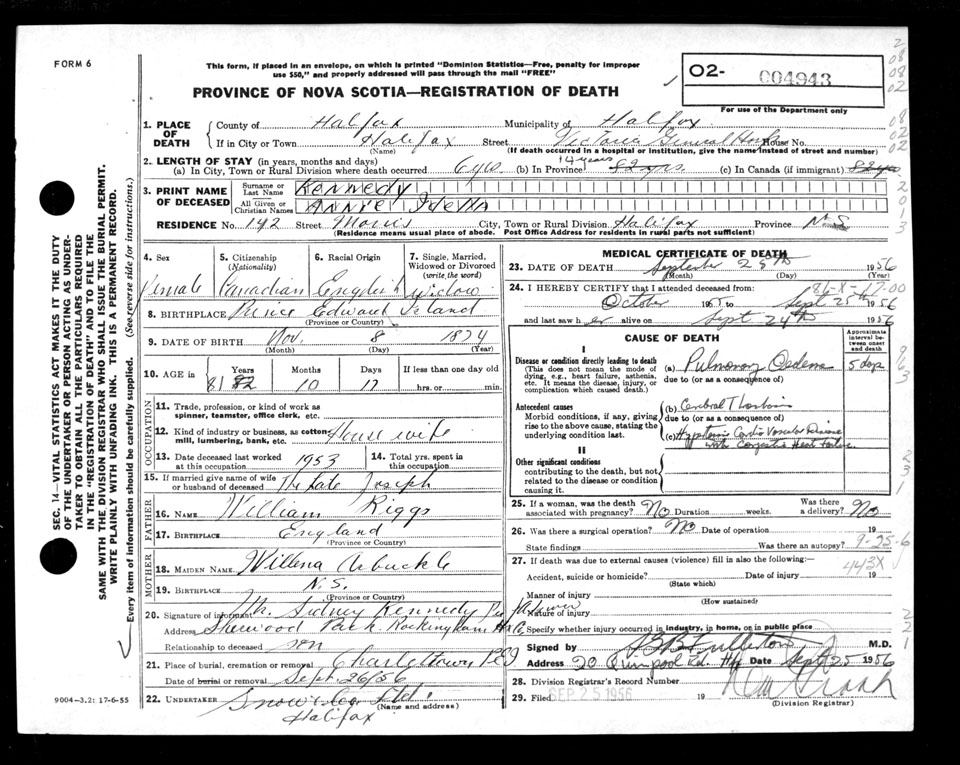 FORM 6
This form, if placed in an envelope, on which is printed "Dominion Statistics—Free, penalty for improper
use $50," and properly addressed will pass through the mail "FREE"
PROVINCE OF NOVA SCOTIA—REGISTRATION OF DEATH
O2- 004943
For use of the Department only
1. PLACE OF DEATH
County of Halifax Municipality of Halifax
If in City or Town Halifax Street Victoria General Hosp House No.
(Name) (If death occurred in a hospital or institution, give the name instead of street and number)
2. LENGTH OF STAY (in years, months and days)
(a) In City, Town or Rural Division where death occurred 6 yrs. (b) In Province 14 years 82 yrs (c) In Canada (if immigrant) 82 yrs
3. PRINT NAME OF DECEASED
Surname or Last Name KENNEDY
All Given or Christian Names ANNIE IDELLA
RESIDENCE No. 142 Street Morris City, Town or Rural Division Halifax Province N.S
(Residence means usual place of abode. Post Office Address for residents in rural parts not sufficient)
4. Sex Female
5. Citizenship (Nationality) Canadian
6. Racial Origin English
7. Single, Married, Widowed or Divorced (write the word) Widow
8. BIRTHPLACE Prince Edward Island
(Province or Country)
9. DATE OF BIRTH Nov. 8 1874
(Month) (Day) (Year)
10. AGE in Years 81 82 Months 10 Days 17 If less than one day old
hrs. or min.
OCCUPATION
11. Trade, profession, or kind of work as
spinner, teamster, office clerk. etc.
12. Kind of industry or business, as cotton
mill, lumbering, bank, etc. House wife
13. Date deceased last worked at this occupation 1953
14. Total yrs. spent in this occupation
15. If married give name of wife
or husband of deceased The late Joseph
FATHER
16. NAME William Riggs
17. BIRTHPLACE England
(Province or Country)
MOTHER
18. MAIDEN NAME Willena Arbuckle
19. BIRTHPLACE N.S.
(Province or Country)
20. Signature of informant Sidney Kennedy
Address Sherwood Park Rockingham Hfx Co
Relationship to deceased son
21. Place of burial, cremation or removal Charlottetown PEI
Date of burial or removal Sept. 26/56
22. UNDERTAKER Snow & Co Ltd.
(Name and Address)
Halifax
9004-3.2: 17-6-55
SEC. 14—VITAL STATISTICS ACT MAKES IT THE DUTY
OF THE UNDERTAKER OR PERSON ACTING AS UNDER-
TAKER TO OBTAIN ALL THE PARTICULARS REQUIRED
IN THE "REGISTRATION OF DEATH" AND TO FILE THE
SAME WITH THE DIVISION REGISTRAR WHO SHALL ISSUE THE BURIAL PERMIT.
WRITE PLAINLY WITH UNFADING INK. THIS IS A PERMANENT RECORD.
Every item of information should be carefully supplied. (See reverse side for instructions.)
MEDICAL CERTIFICATE OF DEATH
23. DATE OF DEATH September 25th 1956
(Month) (Day) (Year)
24. I HEREBY CERTIFY that I attended deceased from:
October 1955 to Sept 25th 1956
and last saw her alive on Sept 24th 1956
CAUSE OF DEATH
Approximate interval between onset and death
I
Disease or condition directly leading to death
(This does not mean the mode of dying, e.g., heart failure, asthenia, etc. It means the disease, injury, or complication which caused death.)
(a) Pulmonary Oedema 5 days
due to (or as a consequence of)
Antecedent causes
Morbid conditions, if any, giving rise to the above cause, stating the underlying condition last.
(b) Cerebral Thrombosis
due to (or as a consequence of)
(c) Hypertensive Cardio Vascular Disease
with Congestive Heart Failure
II
Other significant conditions
contributing to the death, but not related to the disease or condition causing it.
25. If a woman, was the death associated with pregnancy? No Duration weeks. Was there a delivery? No
26. Was there a surgical operation? No Date of operation 19
State findings Was there an autopsy? 9-25-6
27. If death was due to external causes (violence) fill in also the following:
443X
Accident, suicide or homicide? Date of injury 19
(State which)
Manner of injury
(How sustained)
Nature of injury
Specify whether injury occurred in industry, in home, or in public place
Signed by Fullerton M.D.
Address 20 Quinpool Rd. Hfx Date Sept 25 1956
28. Division Registrar's Record Number
29. Filed SEP 25 1956 19
(Division Registrar)